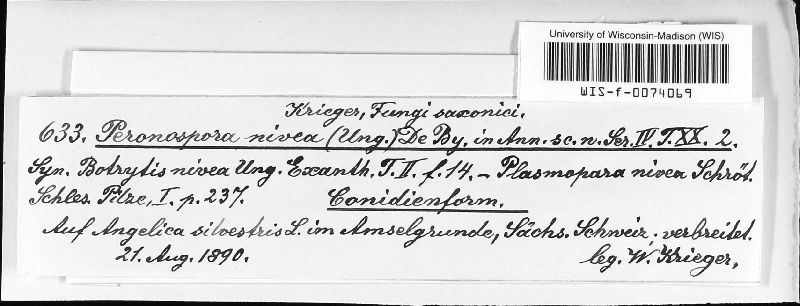 University of Wisconsin-Madison (WIS)
WIS-f-0074069
Krieger, Fungi saxonici.
633. Peronospora nivea (Ung.) De By. in Ann. sc. n. Ser. IV. T. XX. 2.
Syn. Botrytis nivea Ung. Exanth. T. II. f. 14. – Plasmopara nivea Schröt.
Schles. Pilze, I. p. 237. Conidienform.
Auf Angelica silvestris L. im Amselgrunde, Sächs. Schweiz: verbreitet.
21. Aug. 1890. leg. W. Krieger,